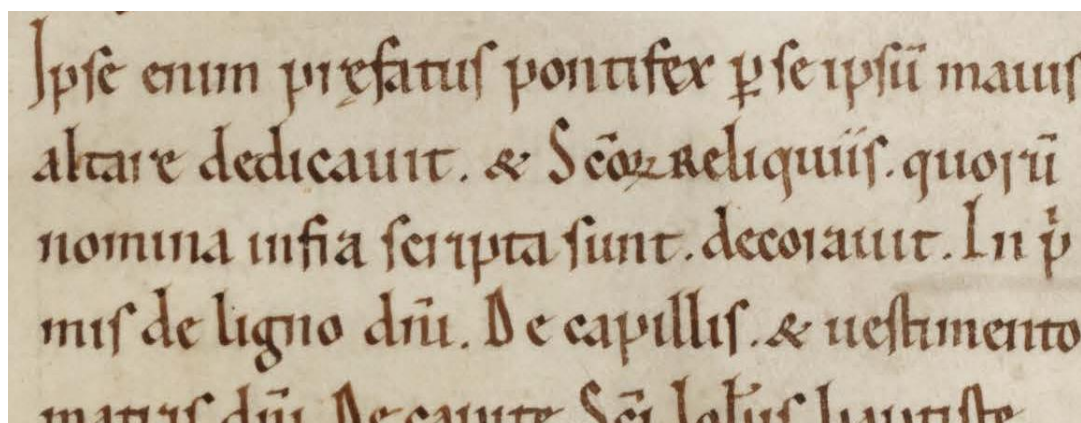 Ipse enim pręfatus pontifex ꝑ se ipsū maius
altare dedicauit. & Scōꝝ Reliquiis. quorū
nomina infra scripta sunt. decorauit. In p̍
mis de ligno dn̄i. De capillis. & uestimento
matris dn̄i. De capite Scī Ioh̄is baptiste